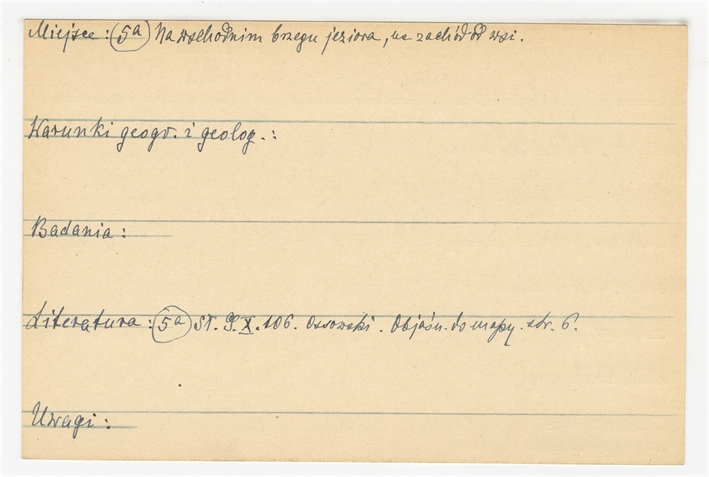 Miejsce: (5a) Na wschodnim brzegu jeziora, na zachód od wsi.
Warunki geogr. i geolog.:
Badania:
Literatura: (5a) St. G. X. 106. Ossowski. Objaśn. do mapy. str. 6.
Uwagi: